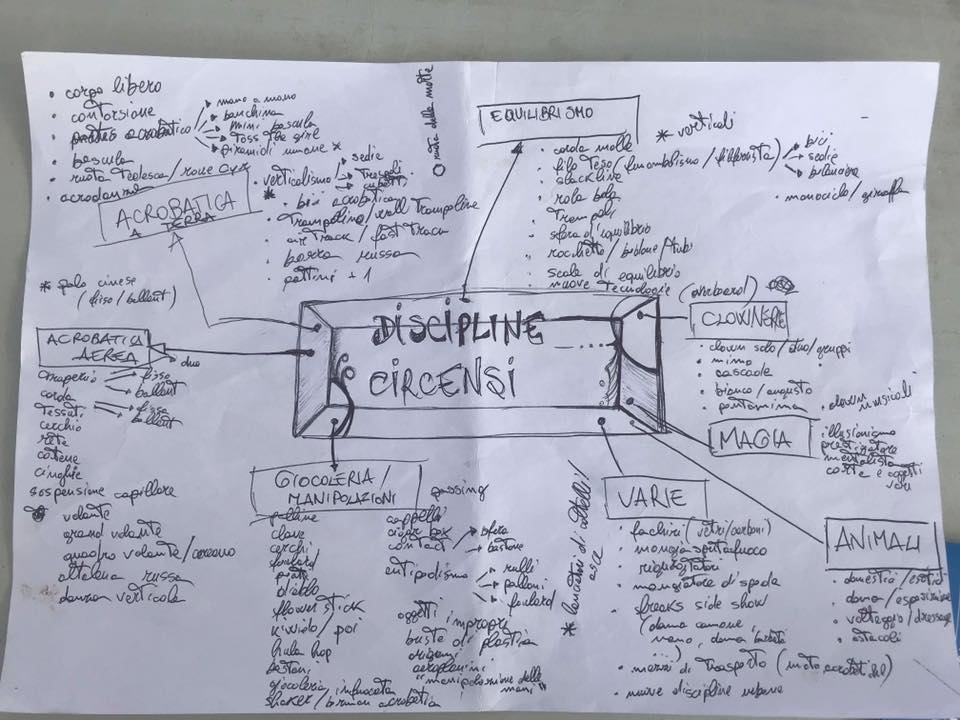 • corpo libero
• contorsione
acrobatico
mano a mano
banchina
mini bascula
piramidi umane *
• bascula
• ruota tedesca / roue cyr
• acrodanza
ACROBATICA
A TERRA
• verticalismo
sedie
trespoli
cubetti
* • bici acrobatica
• trampolino / wall trampoline
• air track / fast track
• barra russa
• pattini + 1
O ruota della morte
EQUILIBRISMO
* verticali
• corda molle
• filo teso (funambolismo / filferrista)
bici
sedie
bilanciere
• slackline
• monociclo / giraffa
• rola bola
• trampoli
• sfera d'equilibrio
• rocchetto / bidone / tubi
• scale di equilibrio
• nuove tecnologie
* palo cinese
(fisso / ballant)
DISCIPLINE
CIRCENSI
CLOWNERIE
• clown solo / duo / gruppi
• mimo
• cascate
• bianco / augusto
• pantomima
• clown musicali
ACROBATICA
AEREA
duo
trapezio
fisso
ballant
corda
tessuti
fisso
ballant
cerchio
rete
catene
cinghie
sospensione capillare
volante
grand volante
quadro volante / coreano
altalena russa
danza verticale
MAGIA
illusionismo
prestigiatore
mentalista
carte e oggetti
vari
GIOCOLERIA /
MANIPOLAZIONI
passing
palline
clave
cerchi
foulard
piatti
diablo
flowerstick
kiwido / poi
hula hop
bastoni
giocoleria infuocata
shaker / birman acrobatica
cappelli
cigar box
contact
sfera
bastone
antipodismo
rulli
palloni
foulard
oggetti impropri
buste di plastica
origami
aeroplanini
"manipolazione delle
mani"
* lanciatori di coltelli /
asce
VARIE
• fachiri (vetri / carboni)
• mangia sputafuoco
• rigurgitatori
• mangiatore di spada
• freaks side show
(donna cannone,
nano, donna barbuta
...)
• mezzi di trasporto
• nuove discipline urbane
ANIMALI
• domestici / esotici
• doma / esposizione
• volteggio / dressage
• ostacoli